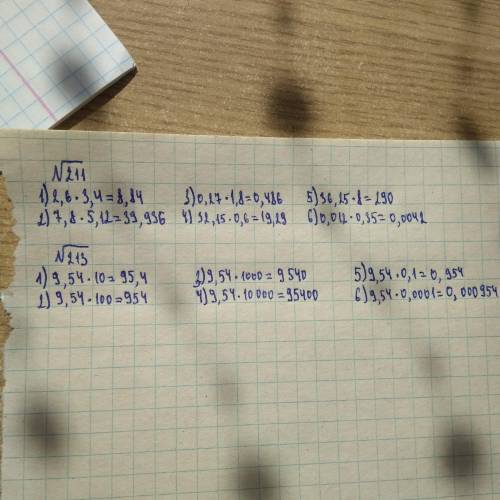 №211
1) 2,6 · 3,4 = 8,84
2) 7,8 · 5,12 = 39,936
3) 0,27 · 1,8 = 0,486
4) 32,15 · 0,6 = 19,29
5) 36,25 · 8 = 290
6) 0,012 · 0,35 = 0,0042
№213
1) 9,54 · 10 = 95,4
2) 9,54 · 100 = 954
3) 9,54 · 1000 = 9540
4) 9,54 · 10 000 = 95400
5) 9,54 · 0,1 = 0,954
6) 9,54 · 0,0001 = 0,000954